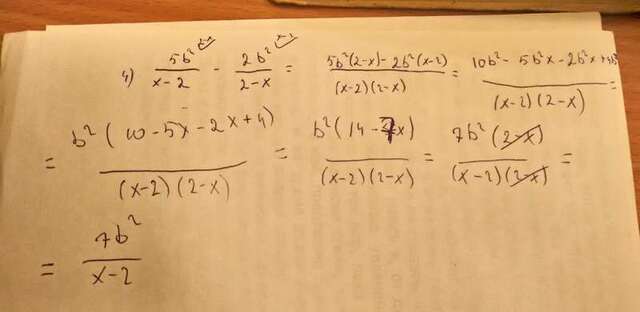 4) 5b²/(x-2) - 2b²/(2-x) = (5b²(2-x) - 2b²(x-2))/((x-2)(2-x)) = (10b² - 5b²x - 2b²x + 4b²)/((x-2)(2-x)) =
= b²(10 - 5x - 2x + 4)/((x-2)(2-x)) = b²(14 - 7x)/((x-2)(2-x)) = 7b²(2-x)/((x-2)(2-x)) =
= 7b²/(x-2)